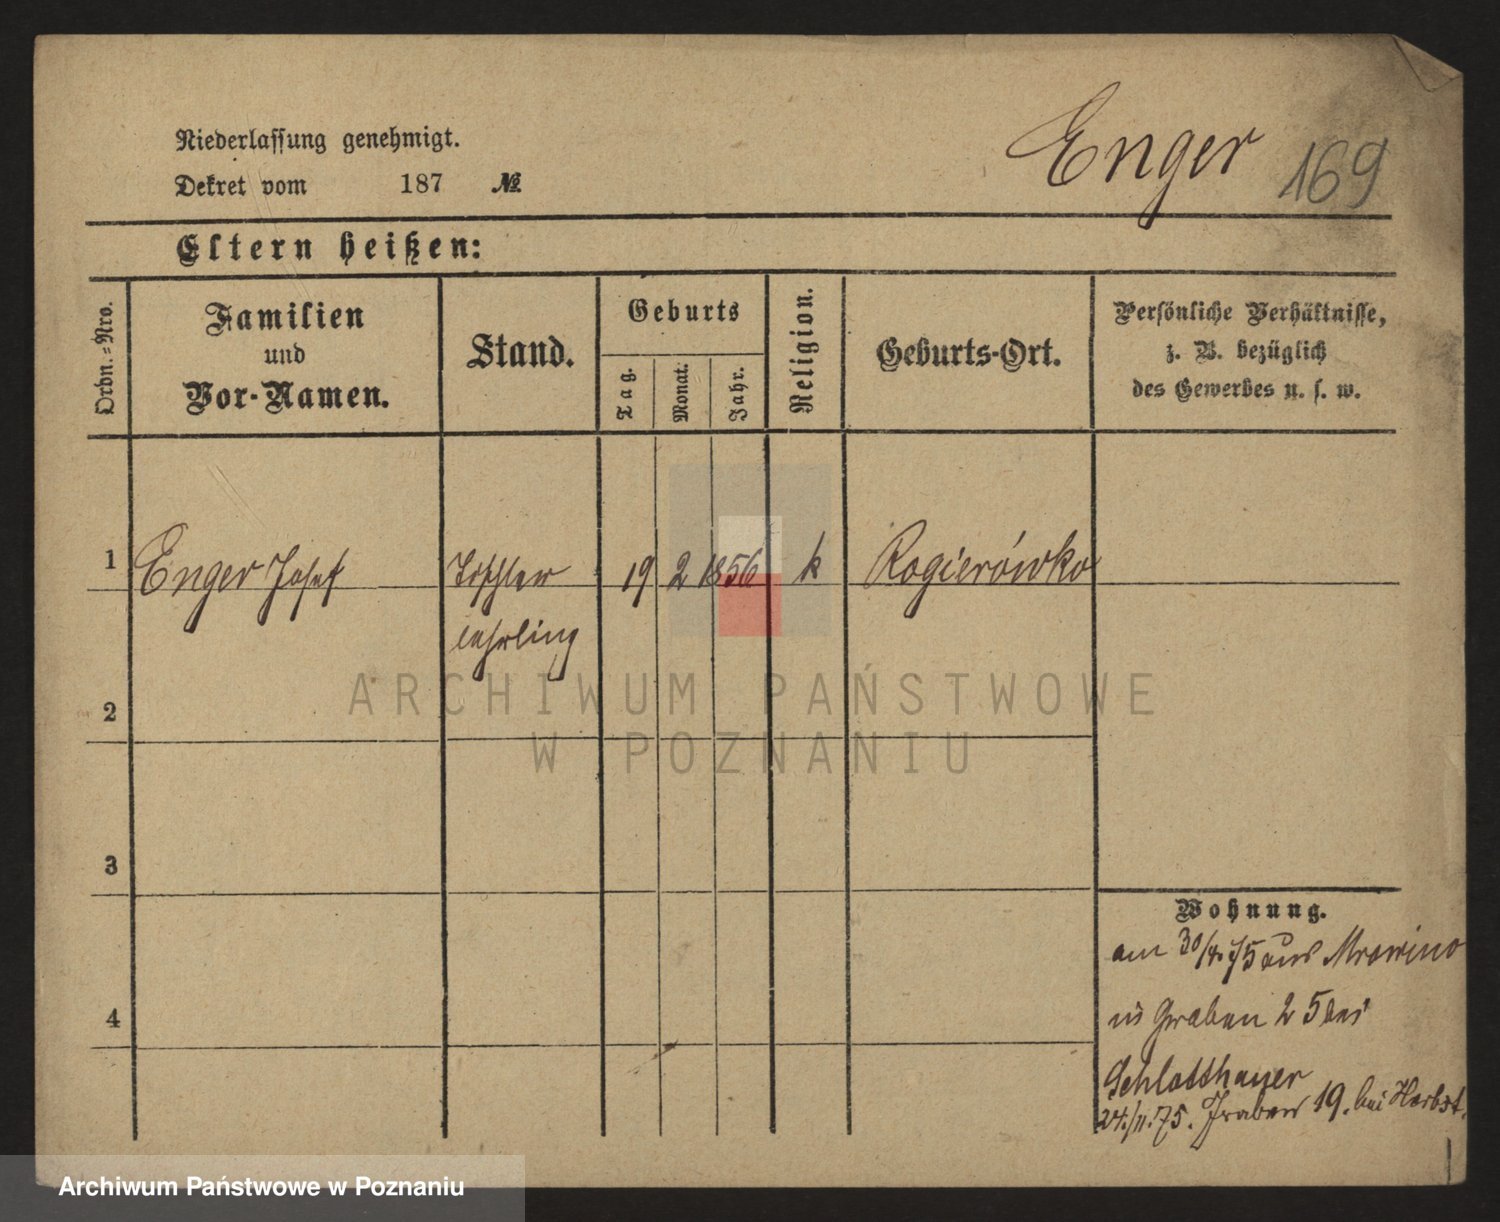 Niederlassung genehmigt.
Dekret vom 187 №
Enger 169
Eltern heißen:
Ordn.-Nro.
Familien
und
Vor-Namen.
Stand.
Geburts
Tag.
Monat.
Jahr.
Religion.
Geburts-Ort.
Persönliche Verhältnisse,
z. B. bezüglich
des Gewerbes u. s. w.
1 Enger Josef Tischler 19 2 1856 k Rogierówko
lehrling
2
3
4
Wohnung.
am 30/4. 75 aus Mrowino
in Graben 25 bei
Schlotthauer
24./11. 75. Graben 19. bei Herbst.
ARCHIWUM PAŃSTWOWE
W POZNANIU
Archiwum Państwowe w Poznaniu